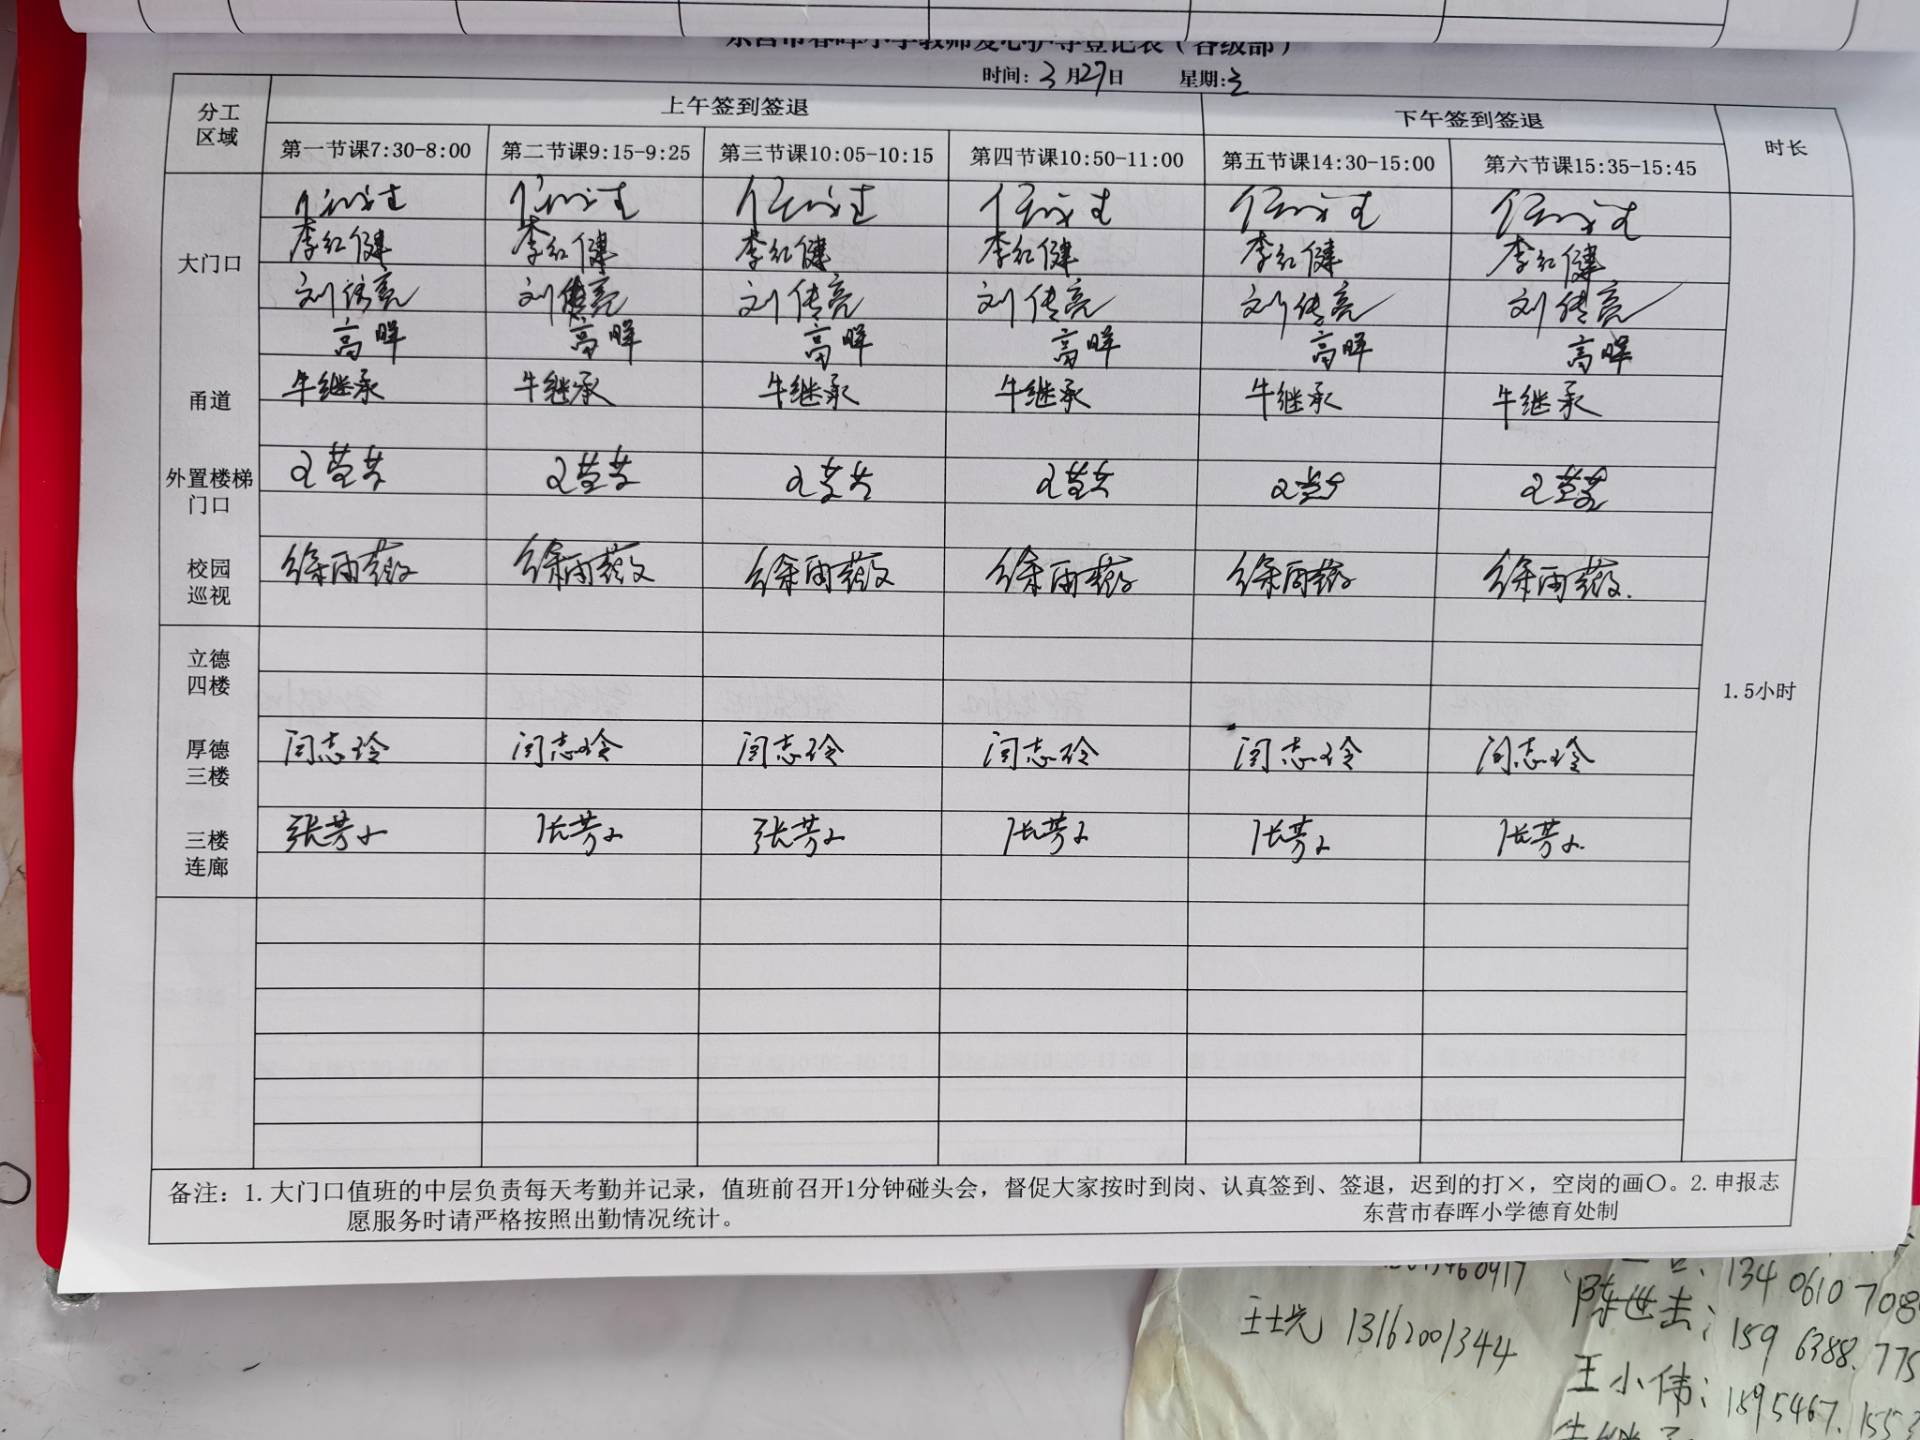 东营市春晖小学教师爱心护导登记表（各级部）
时间：3月27日 星期：三
分工区域 上午签到签退 下午签到签退 时长
第一节课7:30-8:00 第二节课9:15-9:25 第三节课10:05-10:15 第四节课10:50-11:00 第五节课14:30-15:00 第六节课15:35-15:45
大门口
李红健 李红健 李红健 李红健 李红健 李红健
刘传亮 刘传亮 刘传亮 刘传亮 刘传亮 刘传亮
高晖 高晖 高晖 高晖 高晖 高晖
甬道 牛继承 牛继承 牛继承 牛继承 牛继承 牛继承
外置楼梯
门口
校园
巡视
徐雨薇 徐雨薇 徐雨薇 徐雨薇 徐雨薇 徐雨薇
立德
四楼
1.5小时
厚德
三楼
闫志玲 闫志玲 闫志玲 闫志玲 闫志玲 闫志玲
三楼
连廊
备注：1.大门口值班的中层负责每天考勤并记录，值班前召开1分钟碰头会，督促大家按时到岗、认真签到、签退，迟到的打×，空岗的画〇。2.申报志
愿服务时请严格按照出勤情况统计。 东营市春晖小学德育处制
1340610708
王士光 13162001344
陈世吉：1596388.775
王小伟：1895467.1553